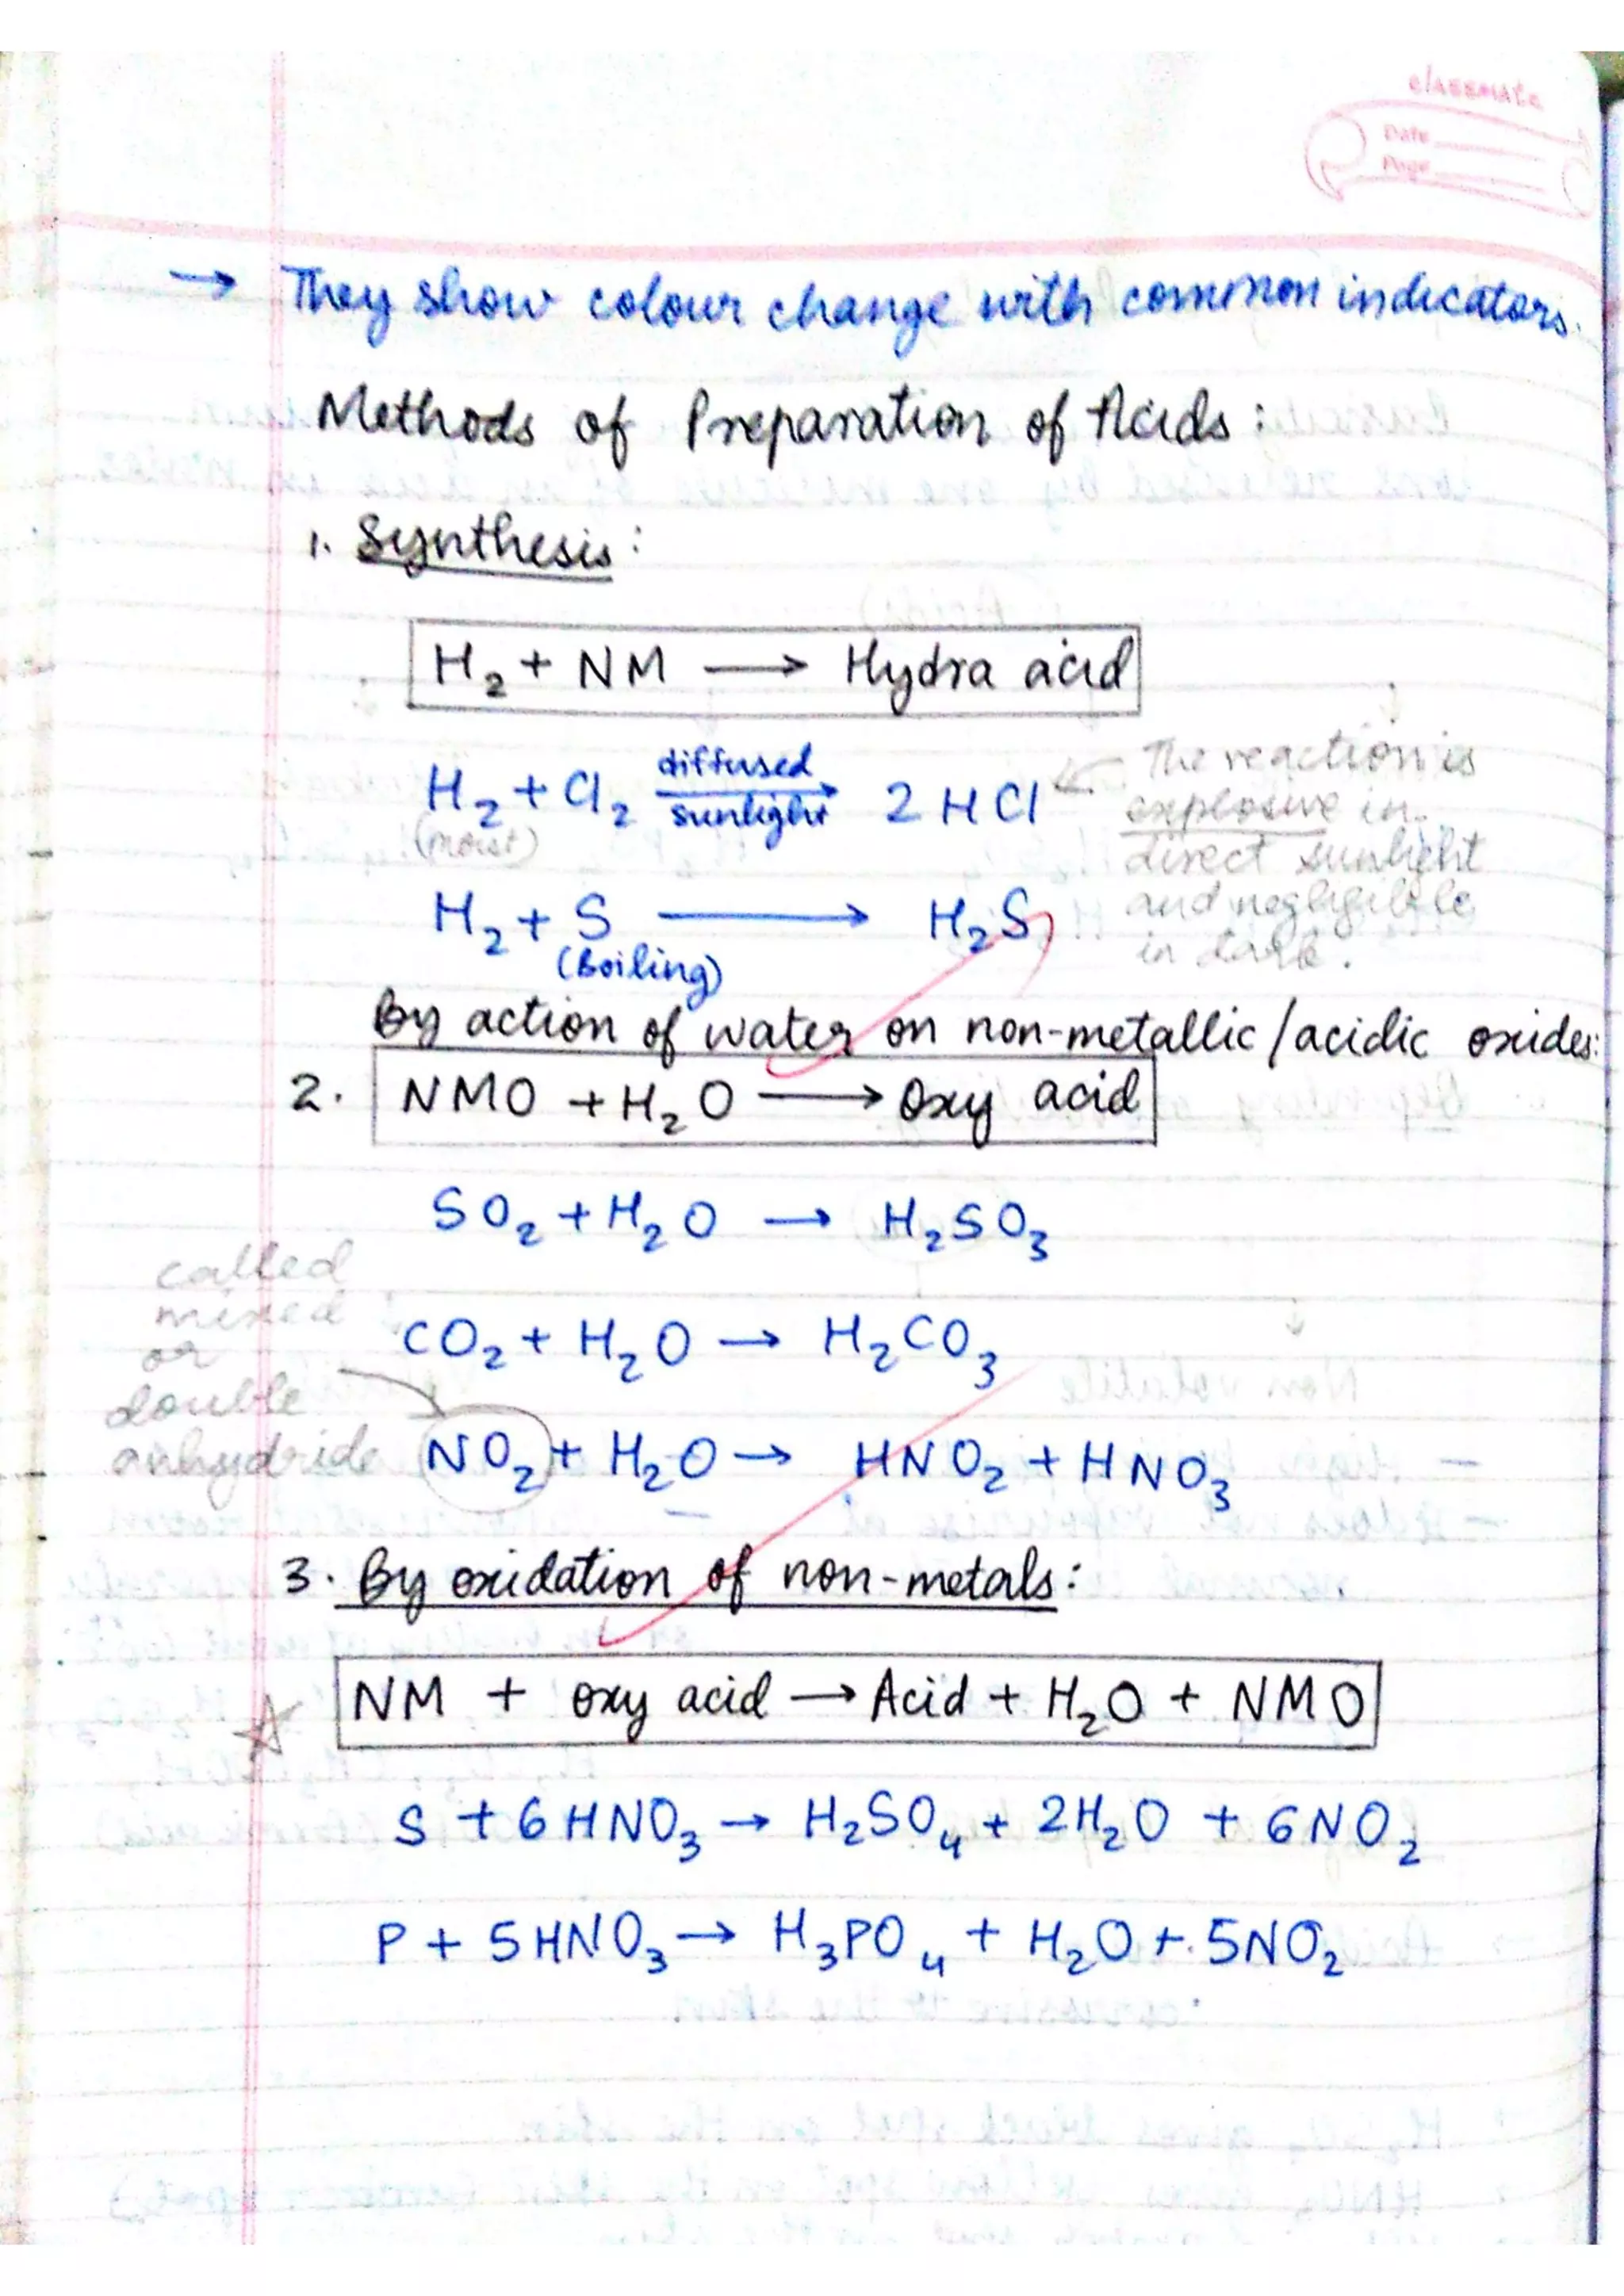 classmate
Date
Page
→ They show colour change with common indicators.
Methods of Preparation of Acids:
1. Synthesis:
H₂ + NM → Hydra acid
H₂ + Cl₂ diffused sunlight → 2HCl
(moist)
The reaction is
explosive in
direct sunlight
and negligible
in dark.
H₂ + S → H₂S
(Boiling)
By action of water on non-metallic/acidic oxides:
2. NMO + H₂O → Oxy acid
SO₂ + H₂O → H₂SO₃
CO₂ + H₂O → H₂CO₃
called
mixed
or
double
anhydride
NO₂ + H₂O → HNO₂ + HNO₃
3. By oxidation of non-metals:
NM + oxy acid → Acid + H₂O + NMO
S + 6HNO₃ → H₂SO₄ + 2H₂O + 6NO₂
P + 5HNO₃ → H₃PO₄ + H₂O + 5NO₂